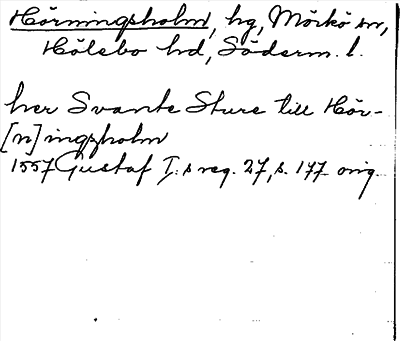 Hörningsholm, hg, Mörkö sn,
Hölebo hd, Söderm. l.
her Svante Sture till Hör-
[n]ingzholm
1557 Gustaf I:s reg. 27, s. 177 orig.